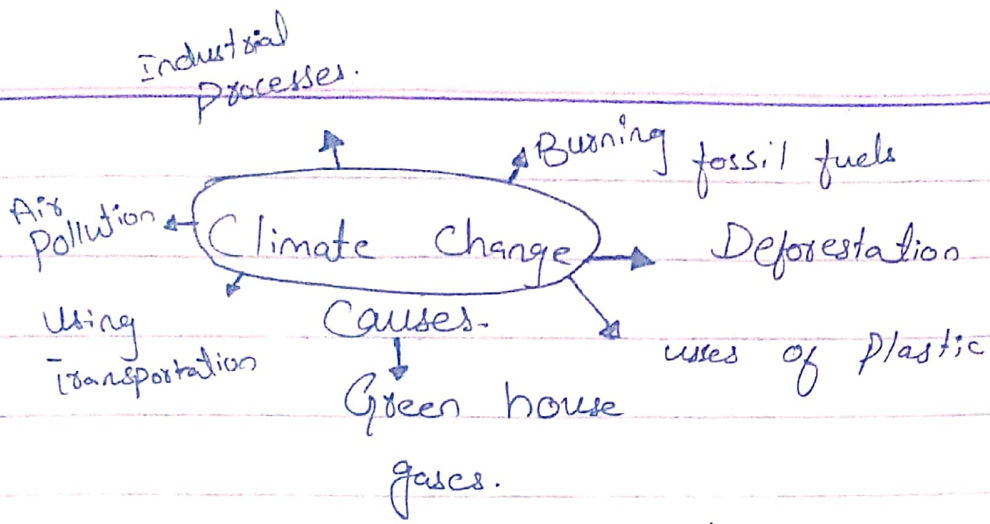 Industrial
processes.
Burning fossil fuels
Air
Pollution
Climate Change
Deforestation
Using
Transportation
Causes.
uses of Plastic
Green house
gases.